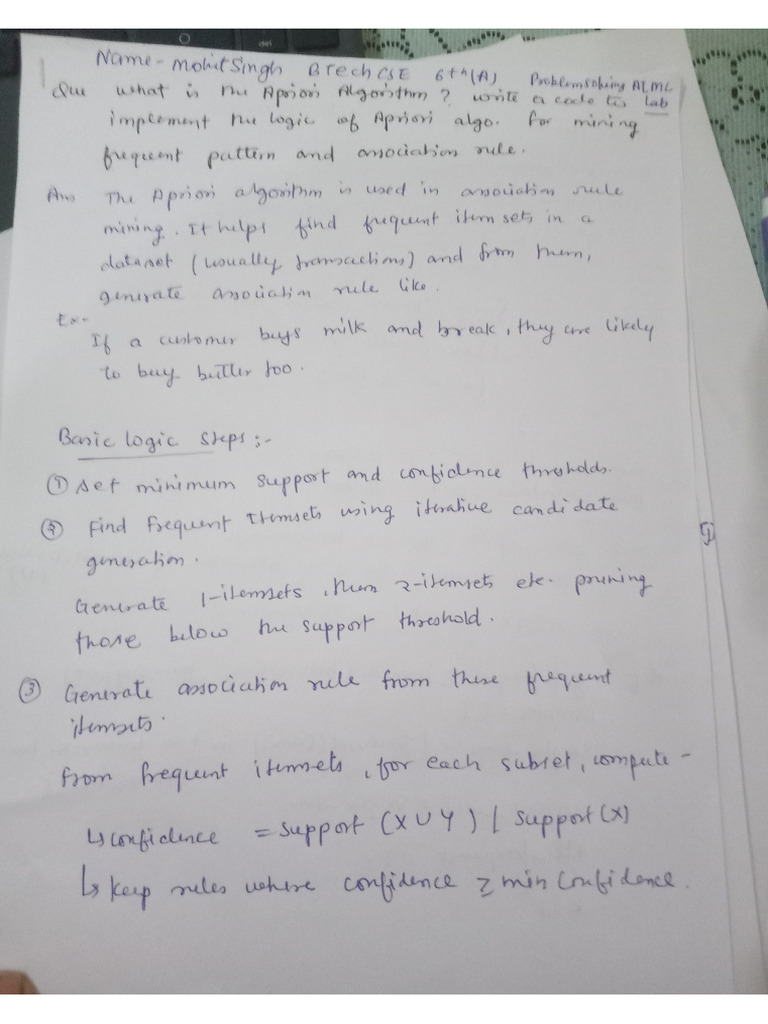 Name - Mohit Singh BTech CSE 6th (A) Problem solving AIML
Que What is the Apriori Algorithm? write a code to Lab
implement the logic of Apriori algo. for mining
frequent pattern and association rule.
Ans The Apriori algorithm is used in association rule
mining. It helps find frequent item sets in a
dataset (usually transactions) and from them,
generate association rule like.
Ex-
If a customer buys milk and break, they are likely
to buy butter too.
Basic logic Steps :-
① Set minimum support and confidence thresholds.
② Find Frequent Itemsets using iterative candidate
generation.
Generate 1-itemsets, then 2-itemsets etc. pruning
those below the support threshold.
③ Generate association rule from these frequent
itemsets.
from frequent itemsets, for each subset, compute -
↳ confidence = support (X∪Y) / support (X)
↳ keep rules where confidence ≥ min confidence.